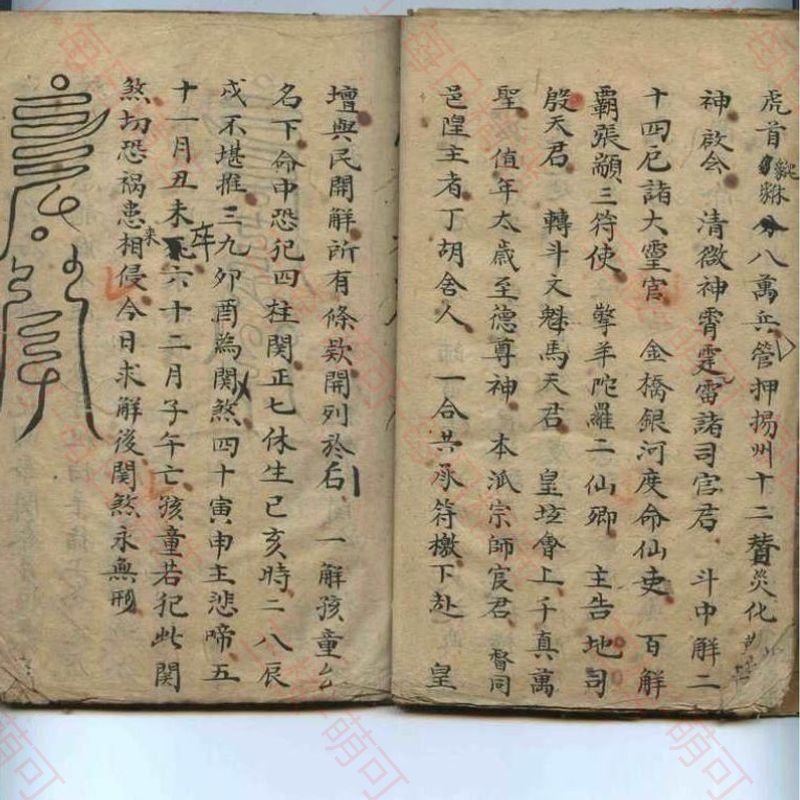 虎首貔貅分八萬兵管押揚州十二賛炎化
神啟令 清微神霄雯雷諸司官君 斗中解二
十四厄諸大靈官 金橋銀河度命仙吏 百解
霸張顓三符使 擎羊陀羅二仙卿 主告地司
殷天君 轉斗文魁馬天君 皇壇會上千真萬
聖 值年太歲至德尊神 本派宗師官君 督同
邑隍主者丁胡舍人 一合共承符檄下赴 皇
壇與民開解所有條欵開列於后 一解孩童厶
名下命中恐犯四柱関正七休生巳亥時二八辰
戌不堪推三九卯酉為関煞四十寅申主悲啼五
十一月丑未卒六十二月子午亡孩童若犯此関
煞切恐禍患來相侵今日求解後関煞永無形